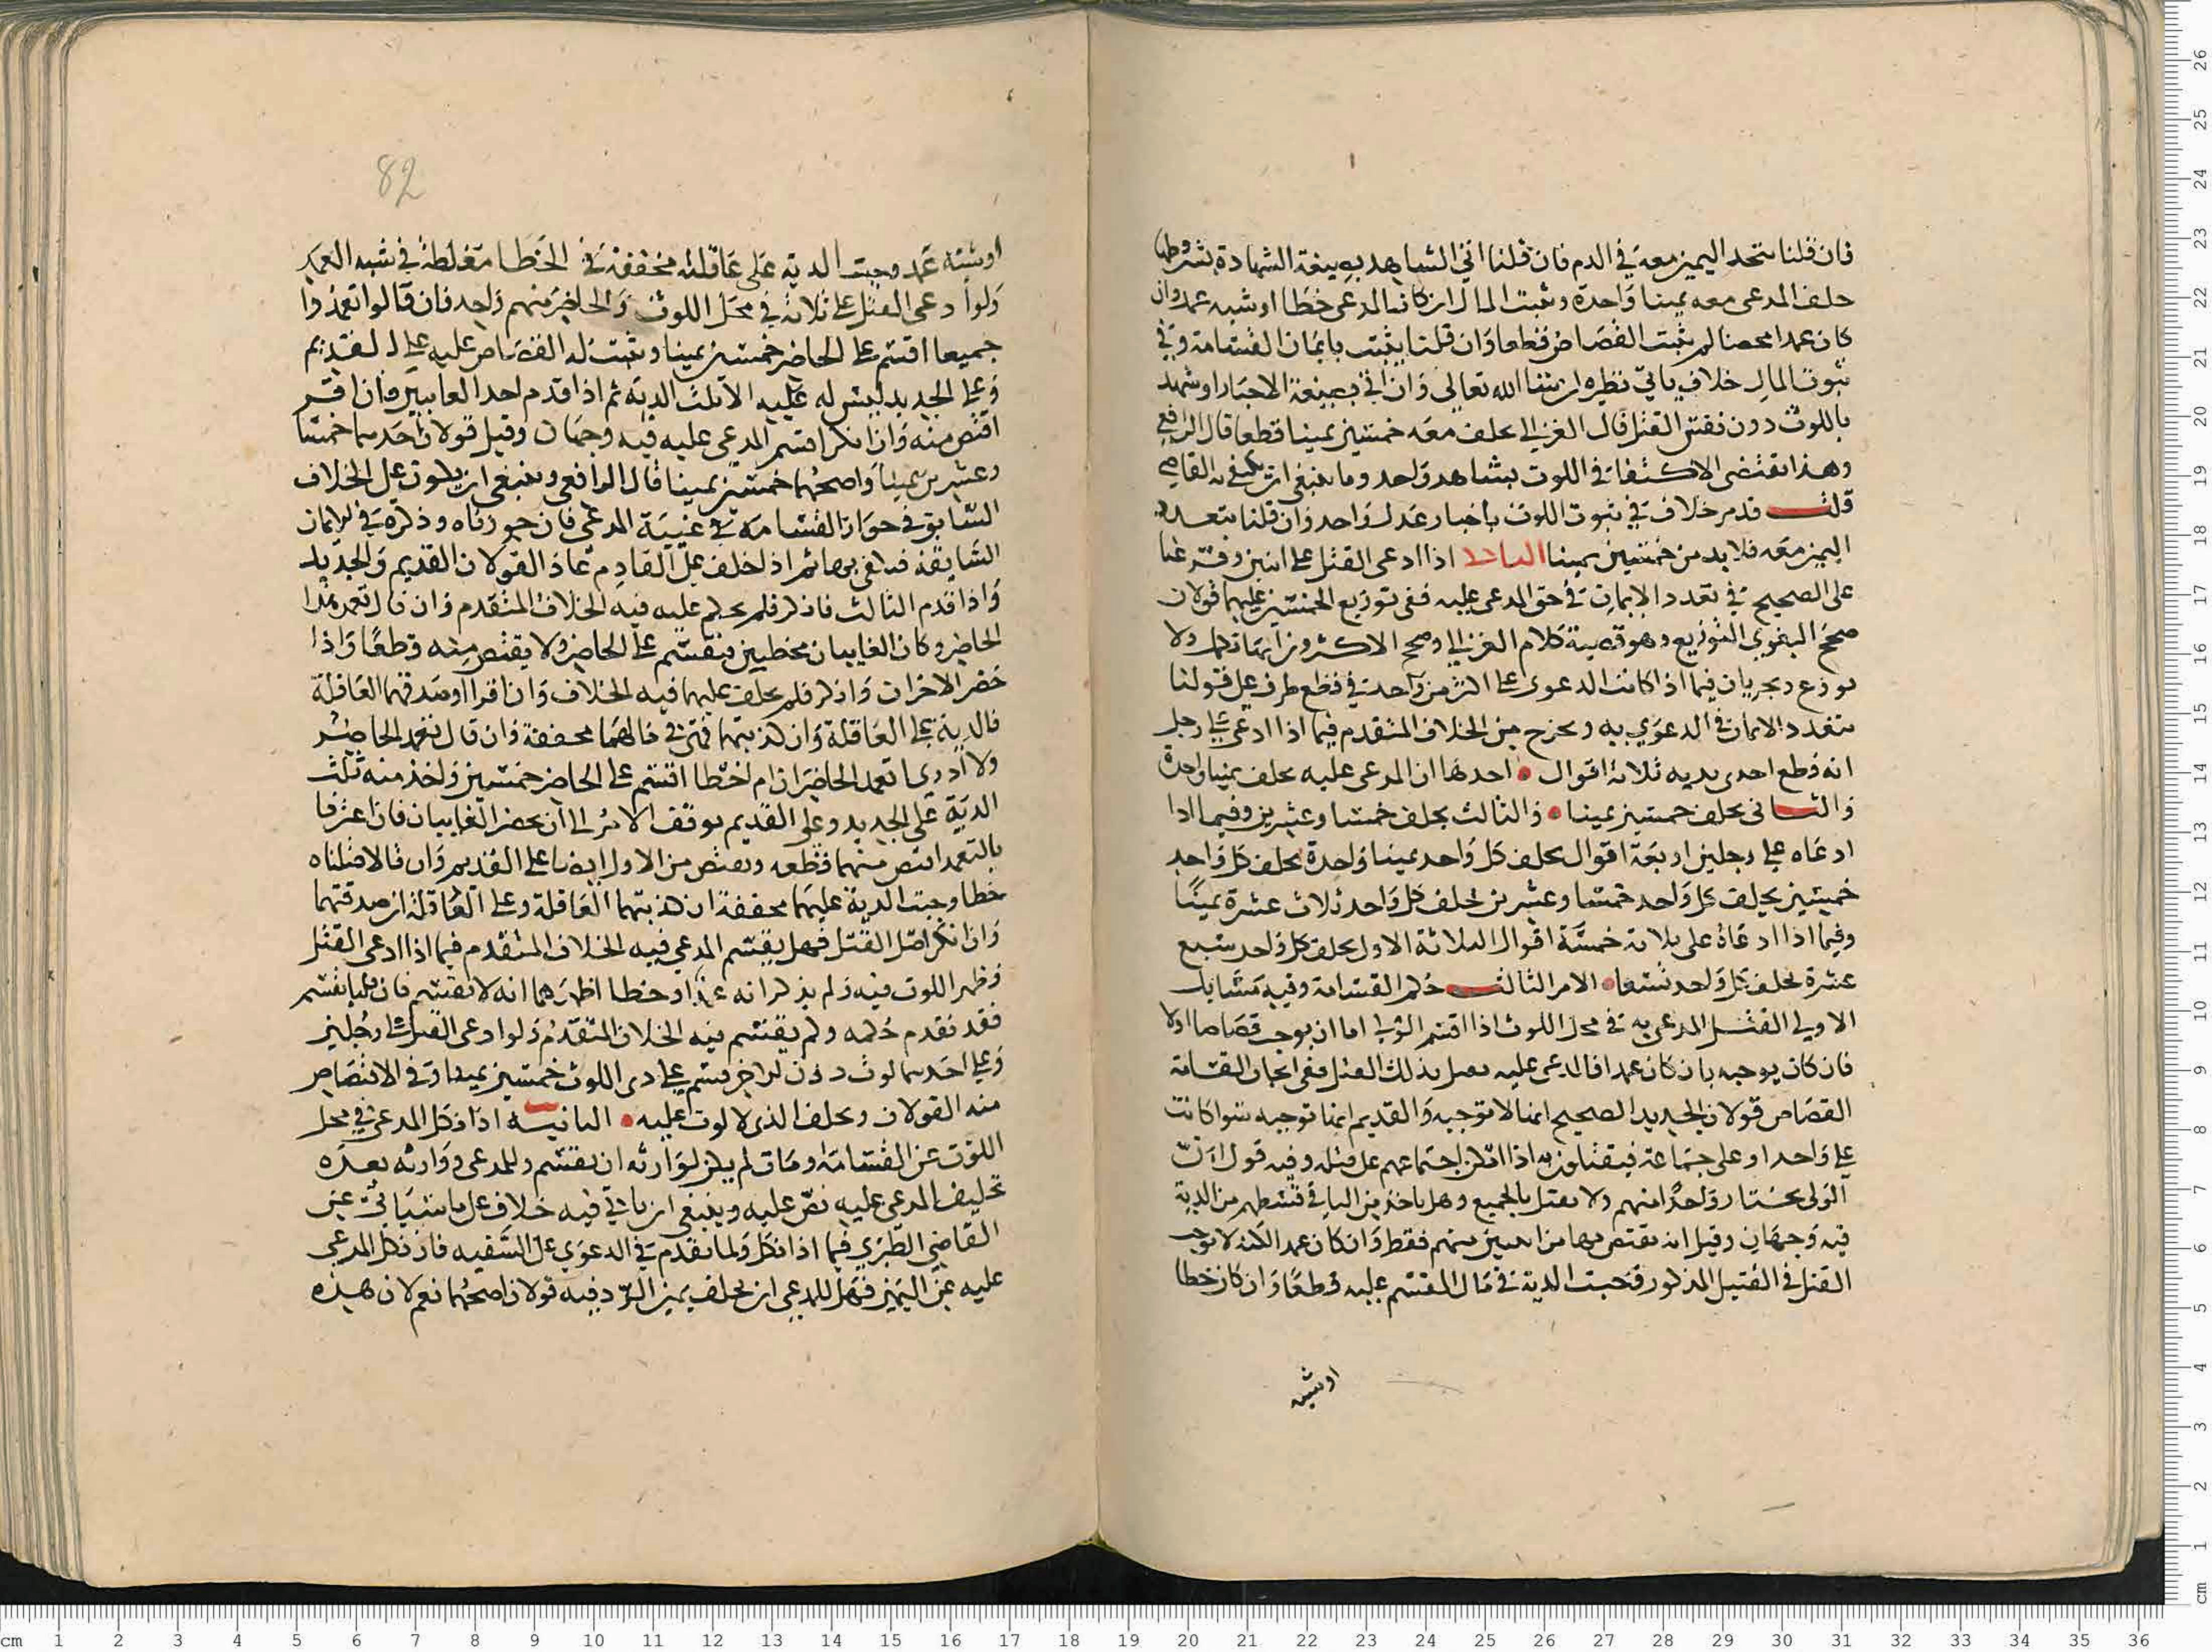 فان قلنا تتحد اليمين معه في الدم فان قلنا اتي الشاهد بصيغة الشهادة بشروطها
حلف المدعى معه يمينا واحدة وثبت المال ان كان المدعى خطا او شبه عمد وان
كان عمدا محضا لم يثبت القصاص قطعا وان قلنا يثبت بايمان القسامة وفي
ثبوت المال خلاف ياتي نظيره ان شا الله تعالى وان اتي بصيغة الاخبار او شهد
باللوث دون نفس القتل قال الغزالي يحلف معه خمسين يمينا قطعا قال الرافعي
وهذا يقتضى الاكتفا في اللوث بشاهد واحد وما ينبغي ان يكتفى به القاضي
قلت قدم خلاف في ثبوت اللوث باخبار عدل واحد وان قلنا بتعدد
اليمين معه فلا بد من خمسين يمينا اذا ادعى القتل على اثنين وفرعنا
على الصحيح في تعدد الايمان في حق المدعى عليه ففي توزيع الخمسين عليهما قولان
صحح البغوي التوزيع وهو قضية كلام الغزالي وصحح الاكثرون انها تكمل ولا
توزع ويجريان فيما اذا كانت الدعوى على اكثر من واحد في قطع طرف على قولنا
بتعدد الايمان في الدعوى به ويخرج من الخلاف المتقدم فيما اذا ادعى على رجل
انه قطع احدى يديه ثلاثة اقوال احدها ان المدعى عليه يحلف يمينا واحدة
والثاني يحلف خمسين يمينا والثالث يحلف خمسا وعشرين وفيما اذا
ادعاه على رجلين اربعة اقوال يحلف كل واحد يمينا واحدة يحلف كل واحد
خمسين يحلف كل واحد خمسا وعشرين يحلف كل واحد ثلاث عشرة يمينا
وفيما اذا ادعاه على ثلاثة خمسة اقوال الثلاثة الاول يحلف كل واحد سبع
عشرة يحلف كل واحد تسعا الامر الثالث حكم القسامة وفيه مسايل
الاولي القتل المدعى به في محل اللوث اذا اقسم الولي اما ان يوجب قصاصا اولا
فان كان يوجبه بان كان عمدا فالمدعى عليه بذلك القتل ففي ايجاب القسامة
القصاص قولان الجديد الصحيح انها لا توجبه والقديم انها توجبه سوا كانت
على واحد او على جماعة فيقتلون به اذا امكن اجتماعهم على قتله وفيه قول ان
الولى يختار واحدا منهم ولا يقتل بالجميع وهل ياخذ من الباقي قسطهم من الدية
فيه وجهان وقيل انه يقتص بها من اثنين منهم فقط وان كان عمدا لكنه لا يوجب
القتل في القتيل المذكور فتجب الدية في مال المقسم عليه قطعا وان كان خطا
او شبه
82
او شبه عمد وجبت الدية على عاقلته مخففة في الخطا مغلظة في شبه العمد
ولو ادعى القتل على ثلاثة في محل اللوث والحاضر منهم واحد فان قالوا تعمدوا
جميعا اقسم على الحاضر خمسين يمينا وثبت له القصاص عليه على القديم
وعلى الجديد ليس له عليه الا ثلث الدية ثم اذا قدم احد الغايبين فان اقر
اقتص منه وان انكر اقسم المدعى عليه فيه وجهان وقيل قولان احدهما خمسا
وعشرين يمينا واصحهما خمسين يمينا قال الرافعي وينبغي ان يكون على الخلاف
السابق في جواز القسامة في غيبة المدعى فان جوزناه وذكره في الايمان
السابقة فيكتفي بها ثم اذا حلف على القادم عاد القولان القديم والجديد
واذا قدم الثالث فانكر فلم يحلف عليه فيه الخلاف المتقدم وان قال تعمد هذا
الحاضر وكان الغايبان مخطيين فيقسم على الحاضر ولا يقتص منه قطعا واذا
حضر الاخران وانكر فلم يحلف عليهما فيه الخلاف وان اقرا وصدقهما العاقلة
فالدية على العاقلة وان كذبتهما فهي في مالهما مخففة وان قال تعمد الحاضر
ولا ادري اتعمد الحاضران ام اخطا اقسم على الحاضر خمسين واخذ منه ثلث
الدية على الجديد وعلى القديم يوقف الامر الى ان يحضر الغايبان فان اعترفا
بالتعمد اقتص منهما قطعه ويقتص من الاول ايضا على القديم وان قالا قتلناه
خطا وجبت الدية عليهما مخففة ان كذبتهما العاقلة وعلى العاقلة ان صدقتهما
وان انكر اصل القتل فهل يقسم المدعي فيه الخلاف المتقدم فيما اذا ادعى القتل
وظهر اللوث فيه ولم يذكر انه عمدا او خطا اظهرهما انه لا يقسم فان قلنا يقسم
فقد تقدم حكمه ولم يقسم فيه الخلاف المتقدم ولو ادعى القتل على رجلين
وعلى احدهما لوث دون الاخر يقسم على ذى اللوث خمسين يمينا وفي الاقتصاص
منه القولان ويحلف الذى لا لوث عليه الثانية اذا نكل المدعي في محل
اللوث عن القسامة ومات لم يكن لوارثه ان يقسم وللمدعى ووارثه بعده
تحليف المدعى عليه نص عليه وينبغي ان ياتي فيه خلاف على ما سياتي عن
القاضى الطبري فيما اذا نكل ولما تقدم في الدعوى على السفيه فان نكل المدعى
عليه عن اليمين فهل للمدعى ان يحلف يمين الرد وفيه قولان اصحهما نعم لان هذه